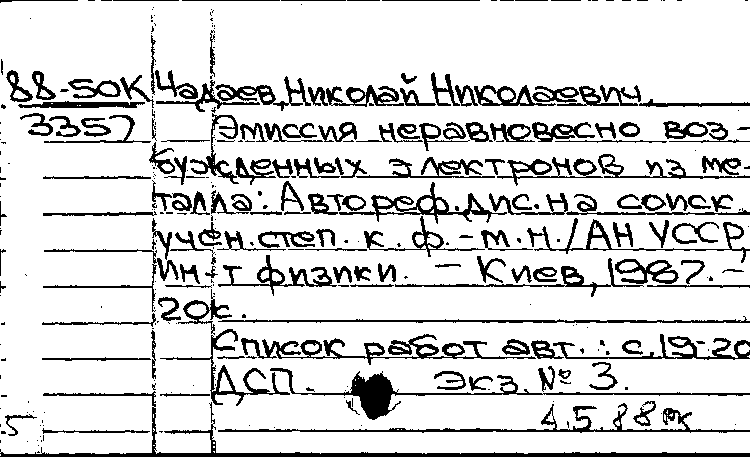 88-50К Чадаев, Николай Николаевич.
3357 Эмиссия неравновесно воз-
бужденных электронов из ме-
талла: Автореф. дис. на соиск.
учен. степ. к. ф.-м. н. / АН УССР,
Ин-т физики. — Киев, 1987. —
20с.
Список работ авт.: с. 19-20
ДСП. Экз. № 3.
4.5.88
5